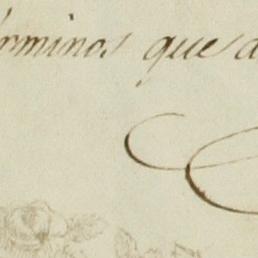 érminos que a